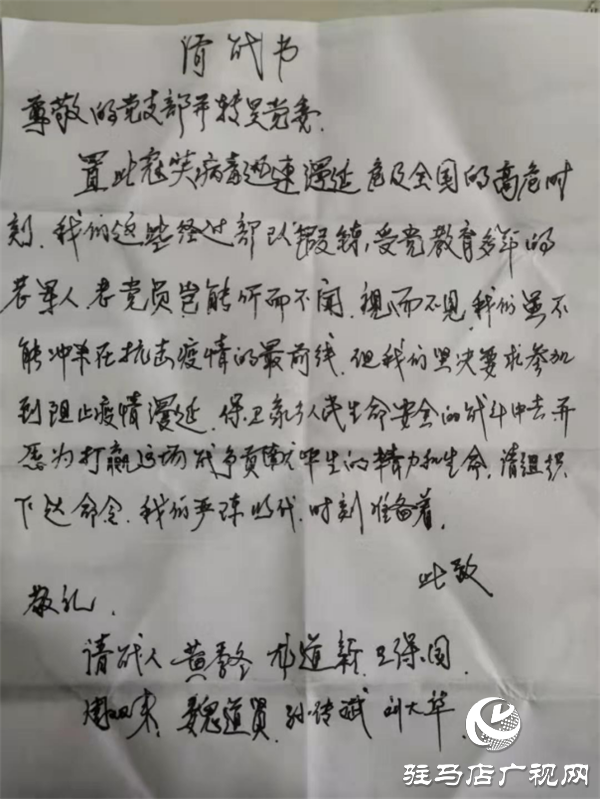 请战书
尊敬的党支部并转呈党委.
置此冠状病毒迅速漫延危及全国的高危时
刻.我们这些经过部队锻鍊,受党教育多年的
老军人.老党员岂能听而不闻.视而不见,我们虽不
能冲杀在抗击疫情的最前线.但我们坚决要求参加
到阻止疫情漫延.保卫家乡人民生命安全的战斗中去并
愿为打赢这场战争贡献毕生的精力和生命.请组织
下达命令.我们严阵以待.时刻准备着.
此致
敬礼.
请战人 黄 道新.卫保国.
周 来.魏道员.孙传斌 刘大华.
驻马店广视网